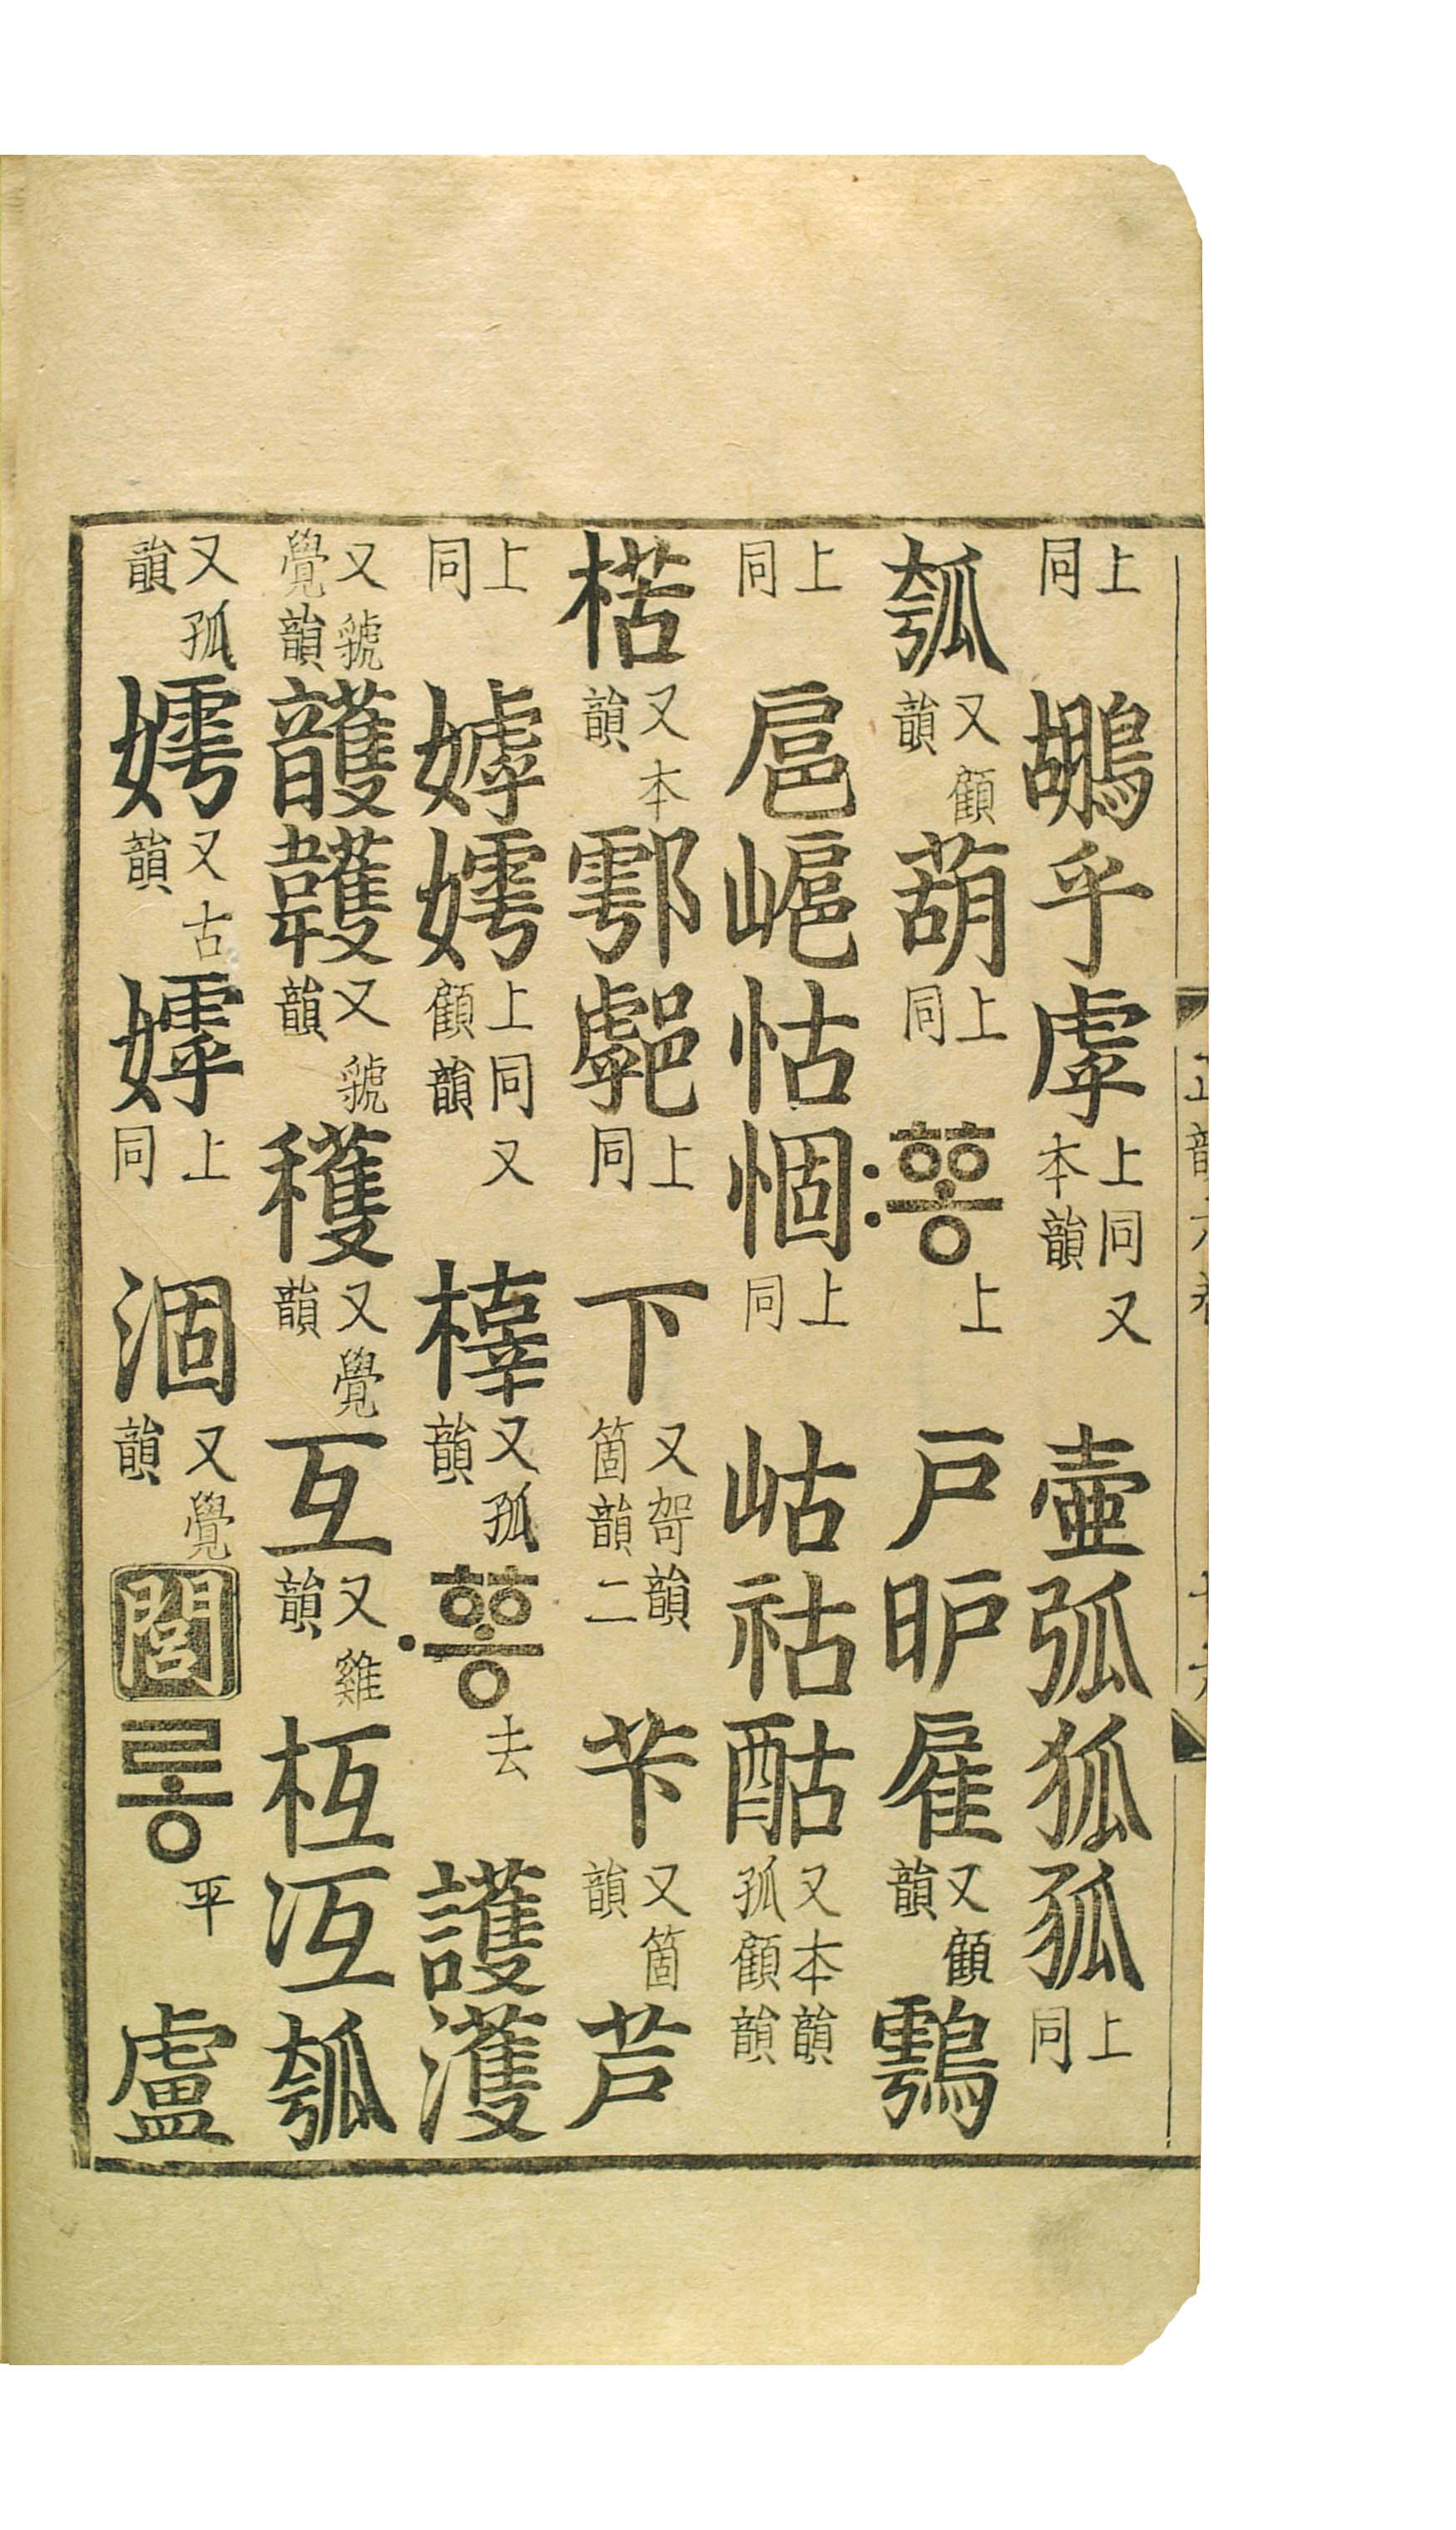 上同鶘乎虖上同又本韻壺弧狐上同
瓠又顧韻葫上同ᅘᅩᇰ〯上戶昈雇又顧韻
上同扈怙上同岵祜酤又本韻孤顧韻
楛又本韻鄠上同下又哿韻箇韻二芐又箇韻芦
上同嫭嫮上同又顧韻又孤韻ᅘᅩᇰ〮去護濩
又覺韻頀韄又韻穫又覺韻互又雞韻枑冱瓠
又孤韻嫮又古韻上同涸又覺韻閭롱平盧